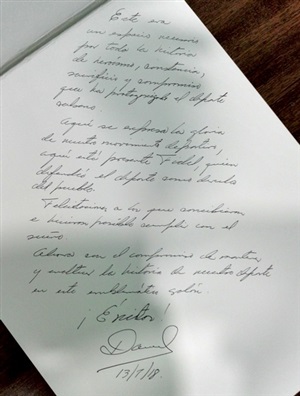 Este era
un espacio necesario
por toda la historia
de heroísmo, constancia,
sacrificio y compromiso
que ha protagonizado el deporte
cubano.
Aquí se expresa la gloria
de nuestro movimiento deportivo,
aquí está presente Fidel, quien
defendió el deporte como derecho
del pueblo.
Felicitaciones a los que concibieron
e hicieron posible cumplir con el
sueño.
Ahora con el compromiso de mantener
y enaltecer la historia de nuestro deporte
en este emblemático salón.
¡Éxitos!
13/7/18.